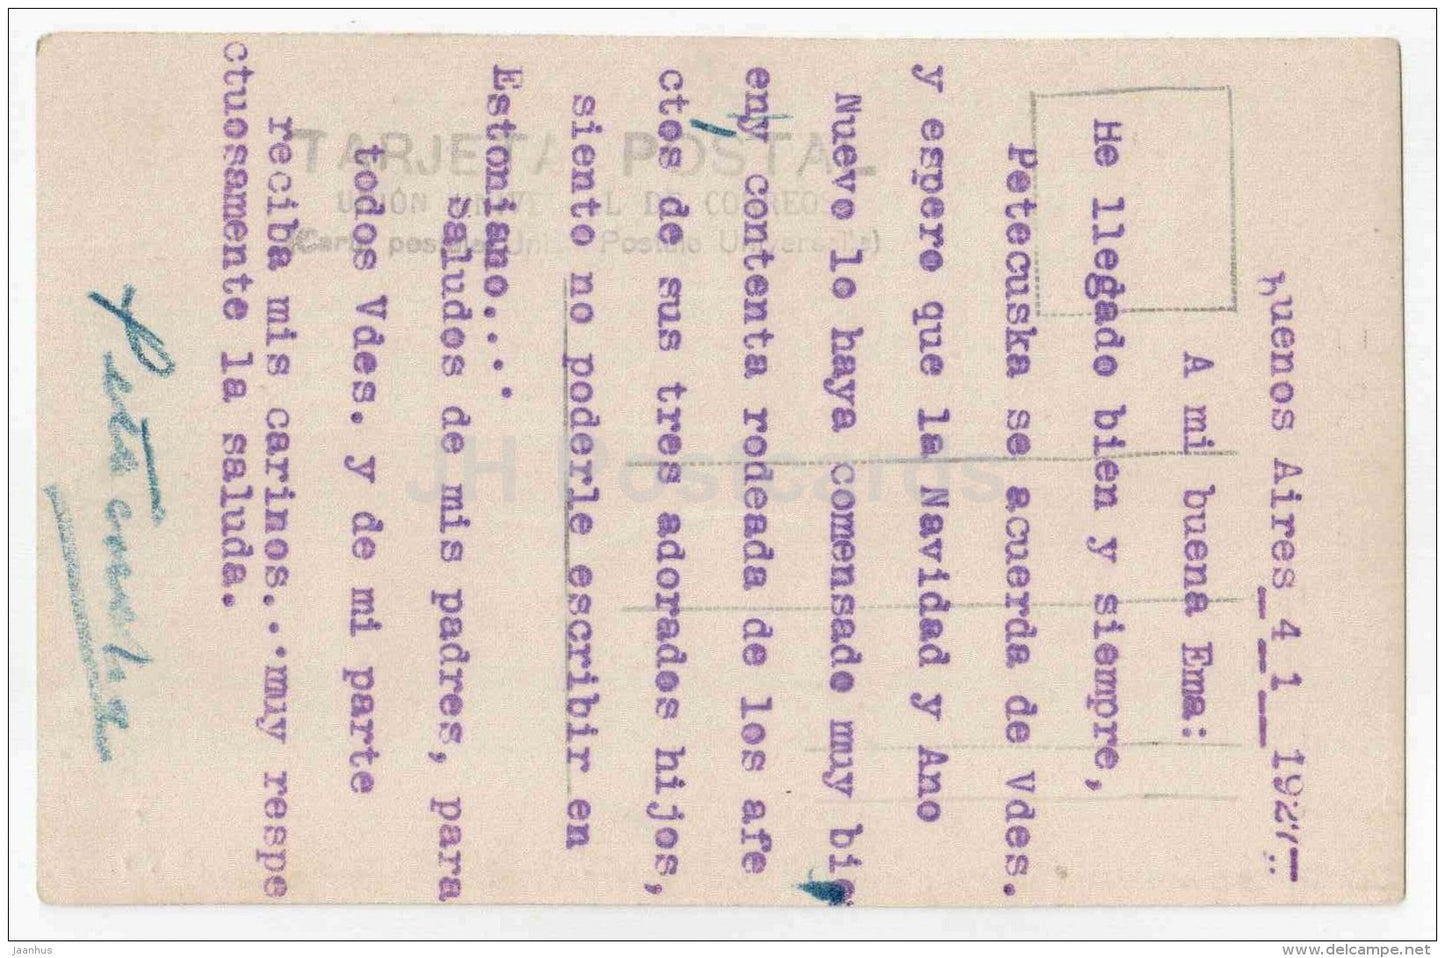 Buenos Aires 4_1_1927_
A mi buena Ema:
He llegado bien y siempre,
Petecuska se acuerda de Vdes.
y espero que la Navidad y Ano
Nuevo lo haya comensado muy bie
eny contenta rodeada de los afe
ctos de sus tres adorados hijos,
siento no poderle escribir en
Estoniano....
Saludos de mis padres, para
todos Vdes. y de mi parte
reciba mis carinos...muy respe
ctuosamente la saluda.
TARJETA POSTAL
UNIÓN UNIVERSAL DE CORREOS
(Carte postale Union Postale Universelle)
JH Postcards
jaanhus
delcampe.net